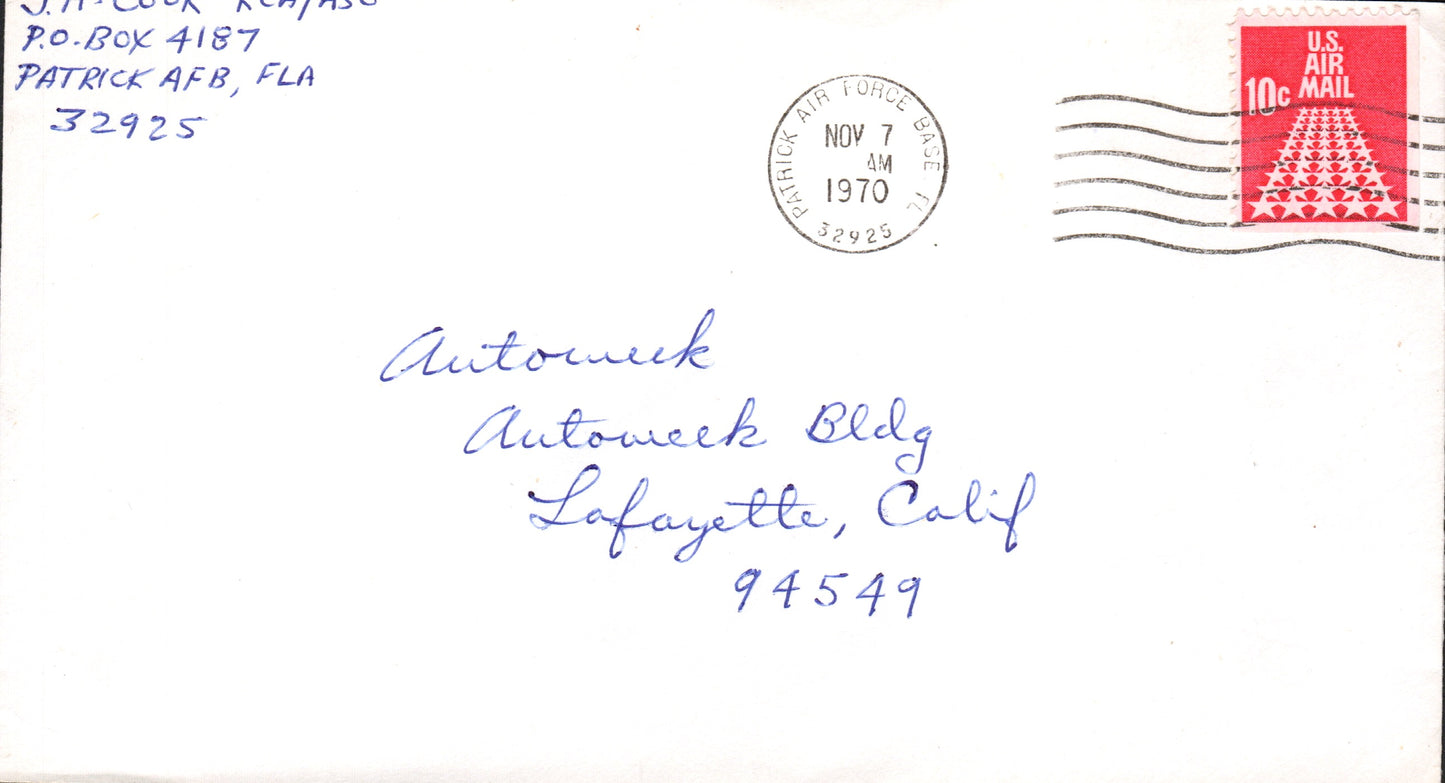 J. H. COOK RCA/ASC
P.O. BOX 4187
PATRICK AFB, FLA
32925
PATRICK AIR FORCE BASE FL
NOV 7
AM
1970
32925
U.S.
AIR
MAIL
10c
Autoweek
Autoweek Bldg
Lafayette, Calif
94549